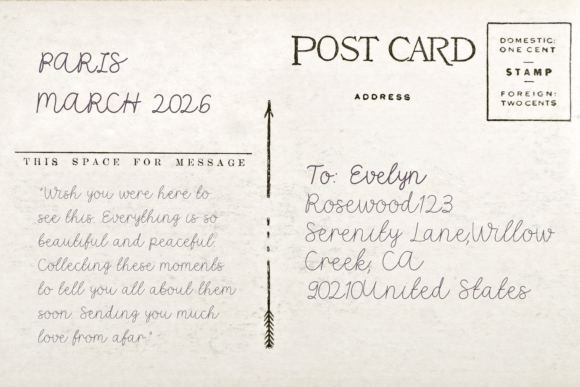 PARIS
MARCH 2026
THIS SPACE FOR MESSAGE
"Wish you were here to
see this. Everything is so
beautiful and peaceful.
Collecting these moments
to tell you all about them
soon. Sending you much
love from afar."
POST CARD
ADDRESS
DOMESTIC:
ONE CENT
STAMP
FOREIGN:
TWO CENTS
To: Evelyn
Rosewood123
Serenity Lane,Willow
Creek, CA
90210United States